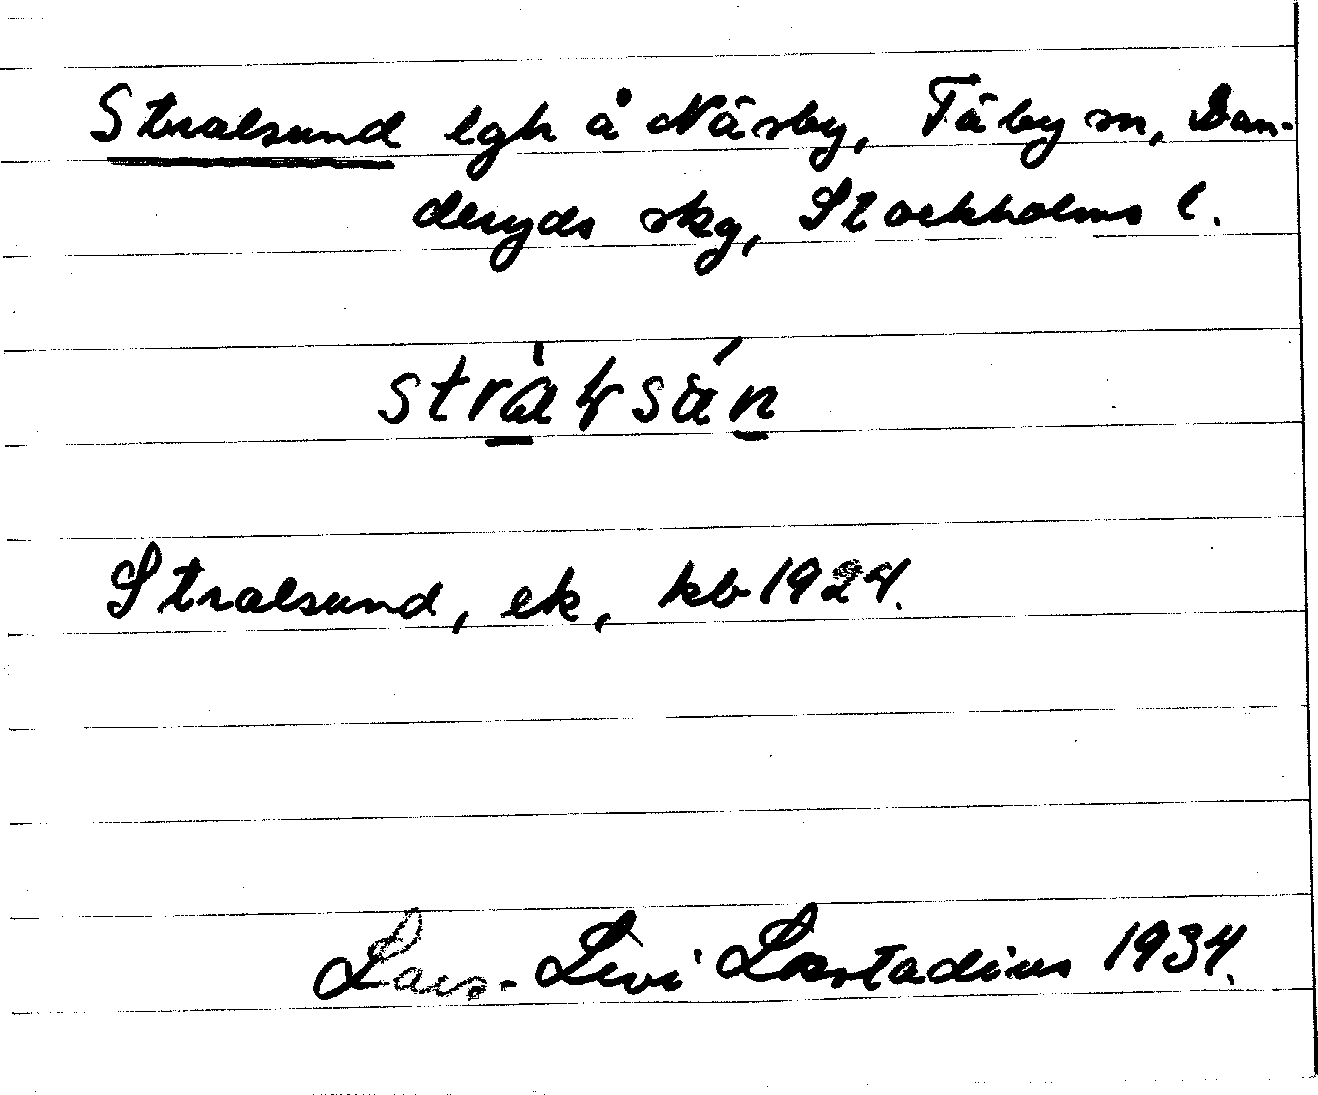 Stralsund lgh å Näsby, Täby sn, Dan-
deryds skg, Stockholms l.
Stralsund, ek, kb 1924.
Lars-Levi Læstadius 1934.